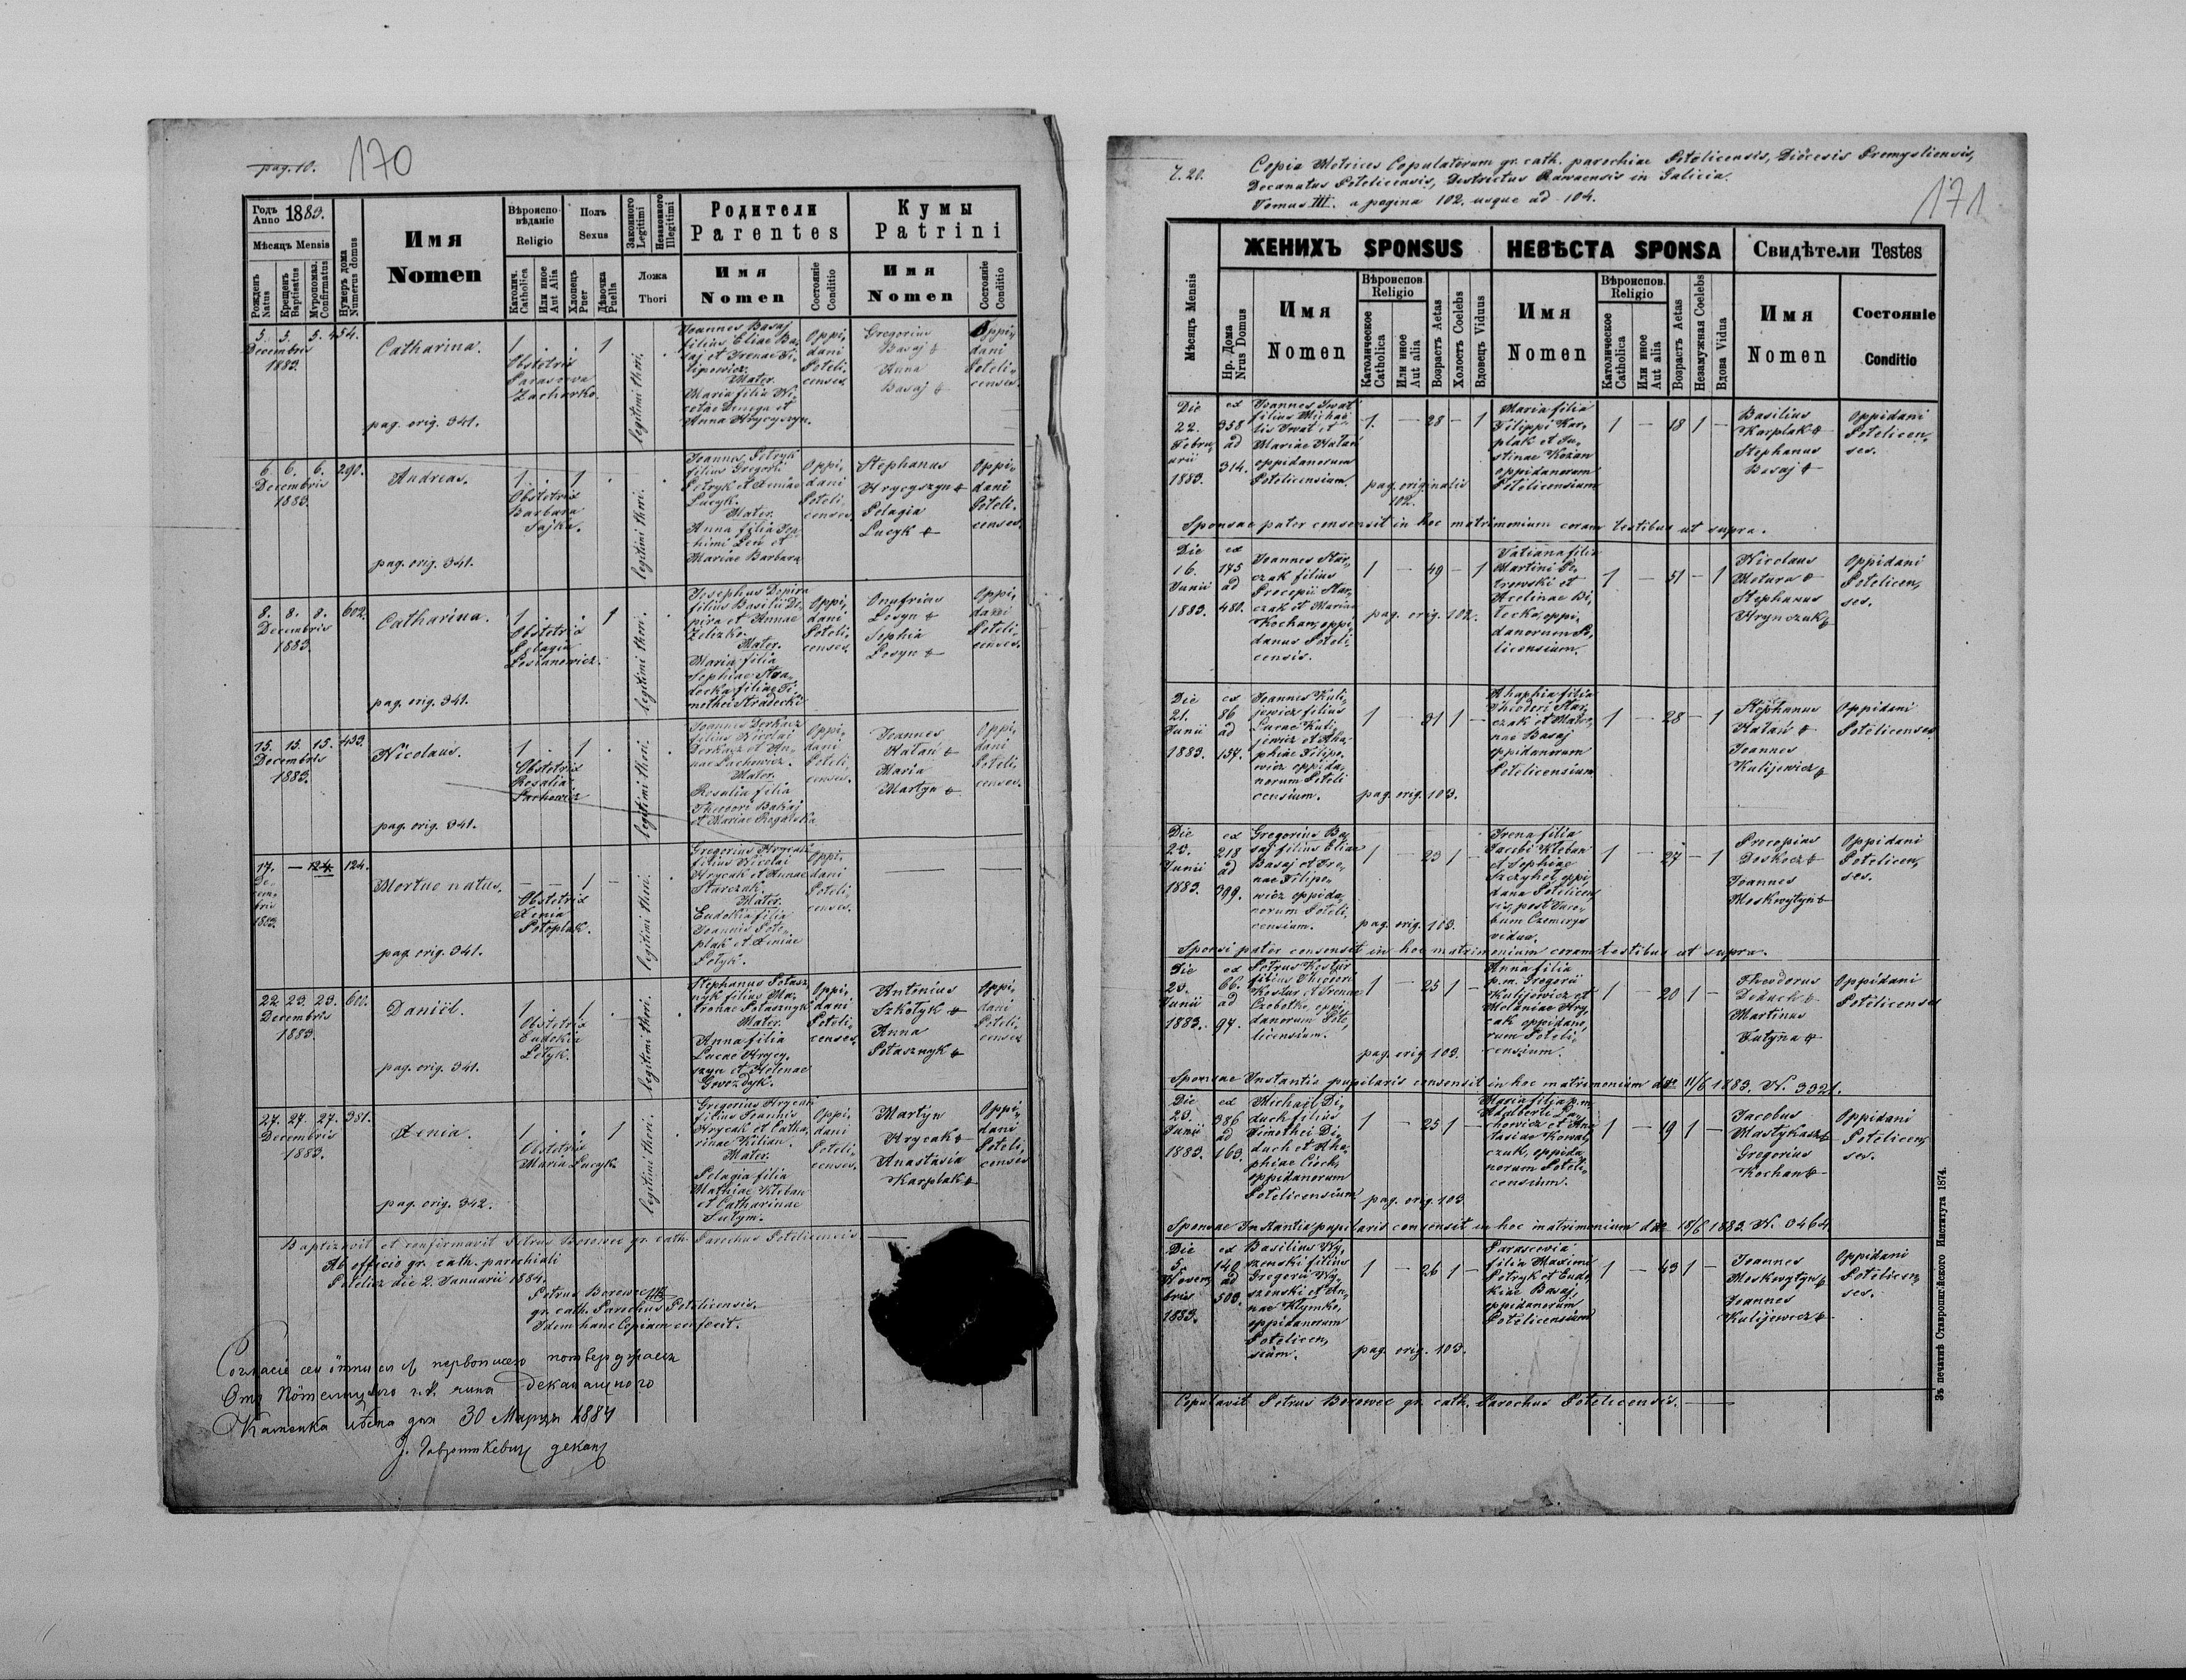 pag. 10.
170
Годъ Anno 1883.
Мѣсяцъ Mensis
Рожденъ Natus
Крещенъ Baptisatus
Муропомаз. Confirmatus
Нумеръ дома Numerus domus
Имя
Nomen
Вѣроисповѣданіе
Religio
Католич. Catholica
Или иное Aut Alia
Полъ
Sexus
Хлопецъ Puer
Дѣвочка Puella
Законного Legitimi
Незаконного Illegitimi
Ложа
Thori
Родители
Parentes
Имя
Nomen
Состояніе Conditio
Кумы
Patrini
Имя
Nomen
Состояніе Conditio
5. 5. 5. 454.
Decembris
1883.
Catharina.
1 . . 1
Obstetrix
Parasceva
Zachorko.
pag. orig. 341.
legitimi thori.
Joannes Basaj
filius Eliae Ba-
saj et Irenae Fi-
lipowicz.
Mater.
Maria filia Ni-
cetae Denega et
Anna Hrycyszyn.
Oppi-
dani
Poteli-
censes.
Gregorius
Basaj +
Anna
Basaj +
Oppi-
dani
Poteli-
censes.
6. 6. 6. 290.
Decembris
1883.
Andreas.
1 . 1 .
Obstetrix
Barbara
Sajka.
pag. orig. 341.
legitimi thori.
Joannes Petryk
filius Gregorii
Petryk et Xeniae
Lucyk.
Mater.
Anna filia
Leń et
Mariae Barbara
Oppi-
dani
Poteli-
censes.
Stephanus
Hrycyszyn +
Pelagia
Lucyk +
Oppi-
dani
Poteli-
censes.
8. 8. 8. 602.
Decembris
1883.
Catharina.
1 . . 1
Obstetrix
Pelagia
pag. orig. 341.
legitimi thori.
Josephus Dopira
filius Basilii Do-
pira et Annae
Zelizko.
Mater.
Maria filia
Sophiae Stra-
decka filiae Ti-
mothei Stradecki
Oppi-
dani
Poteli-
censes.
Onufrius
Losyn +
Sophia
Losyn +
Oppi-
dani
Poteli-
censes.
15. 15. 15. 433.
Decembris
1883.
Nicolaus.
1 . 1 .
Obstetrix
Rosalia
Lachowicz
pag. orig. 341.
legitimi thori.
Joannes Derkacz
filius Nicolai
Derkacz et An-
nae Lachowicz.
Mater.
Rosalia filia
Theodori Bakaj
et Mariae Rogalska
Oppi-
dani
Poteli-
censes.
Joannes
Hałań +
Maria
Martyn +
Oppi-
dani
Poteli-
censes.
17. — 124.
De-
cem-
bris
1883.
Mortuo natus.
— — 1 —
Obstetrix
Xenia
Potoplak.
pag. orig. 341.
legitimi thori.
Gregorius Hrycak
filius Nicolai
Hrycak et Annae
Starczak.
Mater.
Eudokia filia
Joannis Poto-
plak et Xeniae
Połyk.
Oppi-
dani
Poteli-
censes.
22. 23. 23. 600.
Decembris
1883.
Daniël.
1 . 1 .
Obstetrix
Eudokia
pag. orig. 341.
legitimi thori.
Stephanus Potasz-
nyk filius Ma-
tronae Potasznyk
Mater.
Anna filia
Lucae Hrycy-
szyn et Helenae
Gwozdyk.
Oppi-
dani
Poteli-
censes.
Antonius
Szkołyk +
Anna
Potasznyk +
Oppi-
dani
Poteli-
censes
27. 27. 27. 381.
Decembris
1883.
Xenia.
1 . . 1
Obstetrix
Maria Lucyk.
pag. orig. 342.
legitimi thori.
Gregorius Hrycak
filius Joannis
Hrycak et Catha-
rinae Kilian.
Mater.
Pelagia filia
Mathiae Kleban
et Catharinae
Sułym.
Oppi-
dani
Poteli-
censes.
Martyn
Hrycak +
Anastasia
Karplak +
Oppi-
dani
Poteli-
censes
Baptizavit et confirmavit Petrus Borowec gr. cath. Parochus Potelicensis
Ab officio gr. cath. parochiali
Potelicz die 2. Januarii 1884.
Petrus Borowec
gr. cath. Parochus Potelicensis.
Idem hanc Copiam confecit.
Согласіе
30 Марця 1884
деканъ
Copia Metrices Copulatorum gr. cath. parochiae Potelicensis, Dioecesis Premysliensis,
Decanatus Potelicensis, Districtus Rawaensis in Galicia.
Tomus III. a pagina 102. usque ad 104.
171
Мѣсяцъ Mensis
Нр. Дома Nrus Domus
ЖЕНИХЪ SPONSUS
Имя
Nomen
Вѣроиспов. Religio
Католическое Catholica
Или иное Aut alia
Возрастъ Aetas
Холостъ Coelebs
Вдовецъ Viduus
НЕВѢСТА SPONSA
Имя
Nomen
Вѣроиспов. Religio
Католическое Catholica
Или иное Aut alia
Возрастъ Aetas
Незамужная Coelebs
Вдова Vidua
Свидѣтели Testes
Имя
Nomen
Состояніе
Conditio
Die
22.
Febru-
arii
1883.
ex
358
ad
314.
Joannes Iwat
filius Michaë-
lis Iwat et
Mariae Hałań
oppidanorum
Potelicensium.
1. — 28 — 1
pag. originalis
102.
Maria filia
Filippi Kar-
plak et Ju-
stinae Kozan
oppidanorum
Potelicensium
1 — 18 1 —
Basilius
Karplak +
Stephanus
Basaj +
Oppidani
Potelicen-
ses.
Sponsae pater consensit in hoc matrimonium coram testibus ut supra.
Die
16.
Junii
1883.
ex
175
ad
480.
Joannes Star-
czak filius
Procopii Star-
czak et Mariae
Kochan, oppi-
danus Poteli-
censis.
1 — 49 — 1
pag. orig. 102.
Tatiana filia
Martini Pe-
trowski et
Acelinae Bi-
lecka, oppi-
danorum Po-
licensium.
1 — 51 — 1
Nicolaus
Motura +
Stephanus
Hrynczuk +
Oppidani
Potelicen-
ses.
Die
21.
Junii
1883.
ex
86
ad
137.
Joannes Kuli-
jewicz filius
Lucae Kuli-
jewicz et Aha-
phiae Filipo-
wicz oppida-
norum Poteli
censium.
1 — 31 1 —
pag. orig. 103.
Ahaphia filia
Theodori Star-
czak et Matro-
nae Basaj
oppidanorum
Potelicensium
1 — 28 — 1
Stephanus
Hałań +
Joannes
Kulijewicz +
Oppidani
Potelicenses
Die
23.
Junii
1883.
ex
218
ad
399.
Gregorius Ba-
saj filius Eliae
Basaj et Ire-
nae Filipo-
wicz oppida-
norum Poteli-
censium.
1 — 23 1 —
pag. orig. 103.
Irena filia
Jacobi Kleban
et Sophiae
Szczyhoł, oppi-
dana Potelicen-
sis, post Jaco-
bum Czemerys
vidua.
1 — 27 — 1
Procopius
Doskocz +
Joannes
Moskwytyn +
Oppidani
Potelicen-
ses.
Sponsi pater consensit in hoc matrimonium coram testibus ut supra.
Die
23.
Junii
1883.
ex
66.
ad
97.
Petrus Kostur
filius Theodori
Kostur et Irenae
Czobotko, oppi-
danorum Pote-
licensium.
1 — 25 1 —
pag. orig. 103.
Anna filia
p.m. Gregorii
Kulijewicz et
Melaniae Hry-
cak oppidano-
rum Poteli-
censium.
1 — 20 1 —
Theodorus
Didueh +
Martinus
Futyna +
Oppidani
Potelicenses
Sponsae Instantia pupilaris consensit in hoc matrimonium dto 11/6 1883. N. 3321.
Die
23.
Junii
1883.
ex
386
ad
163.
Michaël Di-
duch filius
Timothei Di-
duch et Aha-
phiae Cioch,
oppidanorum
Potelicensium
1 — 25 1 —
pag. orig. 103
Maria filia p.m.
Adalberti La-
chowicz et Ana-
stasiae Kowal-
czuk, oppida-
norum Poteli-
censium.
1 — 19 1 —
Jacobus
Mastykasz +
Gregorius
Kochan +
Oppidani
Potelicen-
ses.
Sponsae Instantia pupilaris consensit in hoc matrimonium dto 18/6 1883. N. 3464
Die
5.
Novem-
bris
1883.
ex
140
ad
503.
Basilius Wy-
szenski filius
Gregorii Wy-
szenski et An-
nae Klymko,
oppidanorum
Potelicen-
sium.
1 — 26 1 —
pag. orig. 103.
Parascevia
filia Maximi
Petryk et Eudo-
kiae Basaj,
oppidanorum
Potelicensium
1 — 43 1 —
Joannes
Moskwytyn +
Joannes
Kulijewicz +
Oppidani
Potelicen-
ses.
Copulavit Petrus Borowec gr. cath. Parochus Potelicensis.
Зъ печатнѣ Ставропигійского Института 1874.